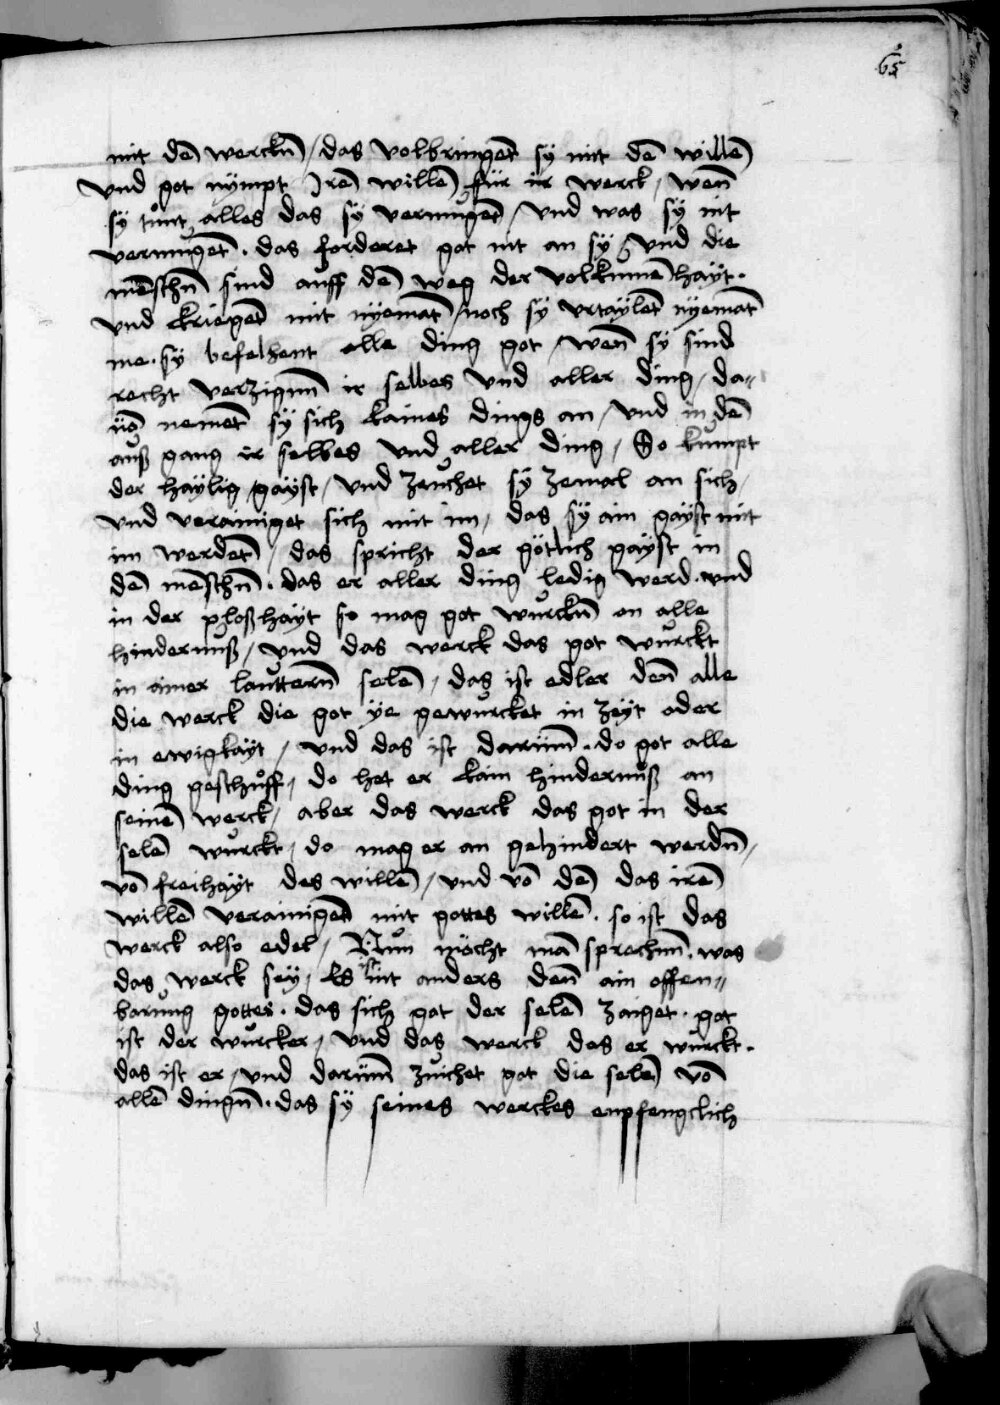 65
mit dē werckn̄ / das volbringēt sÿ mit dē willē
vnd got nÿmpt Jrē willē für ir werck / wen̄
sÿ tůnt alles das sÿ vermügēt / vnd was sÿ nit
vermügēt . das forderet got nit an sÿ / vnd die
mēschn̄ sind auff dē weg der volkumēhaÿt .
vnd kriegēt mit nÿemāt / noch sÿ vrtaÿlēt nÿemāt
me . sÿ befelhent alle ding got / wen̄ sÿ sind
recht verzigun̄ ir selbes vnd aller ding / da-
uō nemēt sÿ sich kaines dings an / vnd in dē
auß gang ir selbes vnd aller ding / So kumpt
der haÿlig gaÿst / vnd zeuchet sÿ zemol an sich /
vnd verainiget sich mit im / das sÿ ain gaÿst mit
im werdēt / das spricht der götlich gaÿst in
dē mēschn̄ . das er aller ding ledig werd . vnd
in der ploßhaÿt so mag got wurckn̄ on alle
hindernuß / vnd das werck das got wurckt
in ainer lauttern̄ selē / das ist edler den̄ alle
die werck die got ÿe gewurcket in zeÿt oder
in ewigkaÿt / vnd das ist darüm̄ . do got alle
ding geschůff / do het er kain hindernuß an
seinē werck / aber das werck das got in der
selē wurckt / do mag er an gehindert werdn̄ /
vō freihaÿt des willē / vnd vō dē das irē
willē verainigēt mit gottes willē . so ist das
werck also edel / Nun möcht mā sprechun̄ . was
das werck seÿ / Es ist nit anders den̄ ain offen-
barung gottes . das sich got der selē zaiget . got
ist der wurcker / vnd das werck das er wurckt .
das ist er / vnd darüm̄ zuichet got die selē vō
allē dingn̄ . das sÿ seines werckes enpfengclich